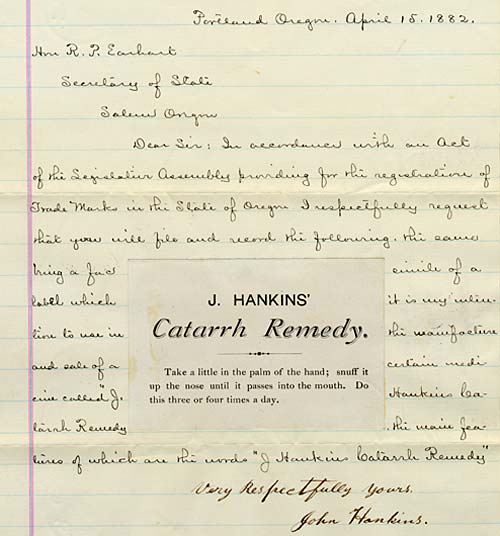 Portland Oregon. April 15. 1882.
Hon R. P. Earhart
Secretary of State
Salem Oregon
Dear Sir: In accordance with an Act
of the Legislative Assembly providing for the registration of
Trade Marks in the State of Oregon I respectfully request
that you will file and record the following. the same
being a fac simile of a
label which it is my inten-
tion to use in the manufacture
and sale of a certain medi
cine called "J. Hankins Ca-
tarrh Remedy the main fea-
tures of which are the words "J Hankins Catarrh Remedy"
Very Respectfully Yours.
John Hankins.
J. HANKINS'
Catarrh Remedy.
Take a little in the palm of the hand; snuff it
up the nose until it passes into the mouth. Do
this three or four times a day.